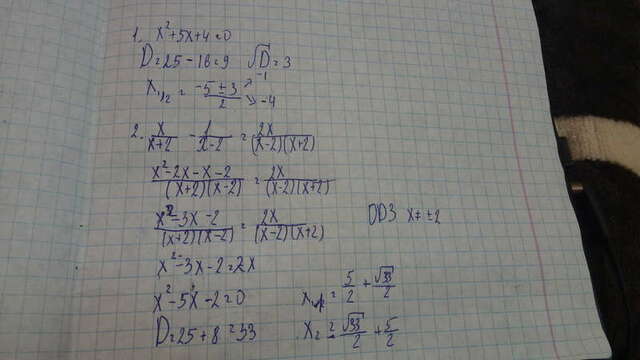 1. x²+5x+4=0
D=25-16=9 √D=3
x₁,₂ = (-5±3)/2 ↗ -1 ↘ -4
2. x/(x+2) - 1/(x-2) = 2x/((x-2)(x+2))
(x²-2x-x-2)/((x+2)(x-2)) = 2x/((x-2)(x+2))
(x²-3x-2)/((x+2)(x-2)) = 2x/((x-2)(x+2)) ОДЗ x≠±2
x²-3x-2=2x
x²-5x-2=0 x₁ = 5/2 + √33/2
D=25+8=33 x₂ = √33/2 + 5/2